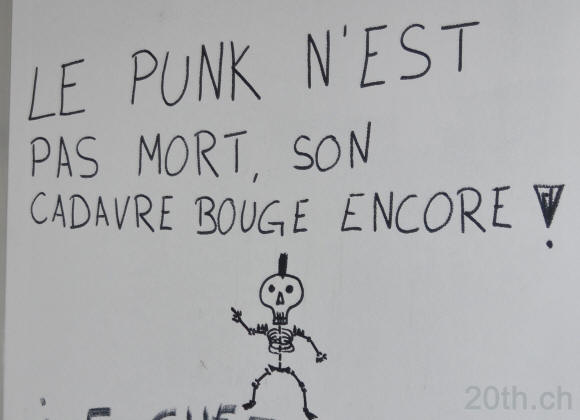 LE PUNK N'EST
PAS MORT, SON
CADAVRE BOUGE ENCORE !
20th.ch